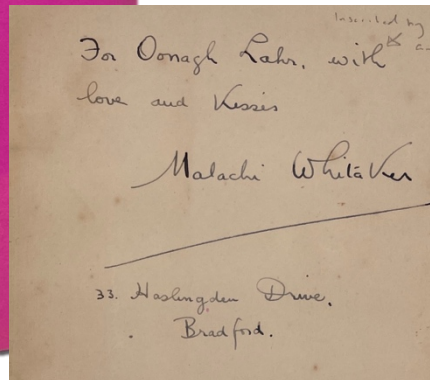 Inscribed by
For Oonagh Lahr, with
love and Kisses
Malachi Whitaker
33. Haslingden Drive.
Bradford.